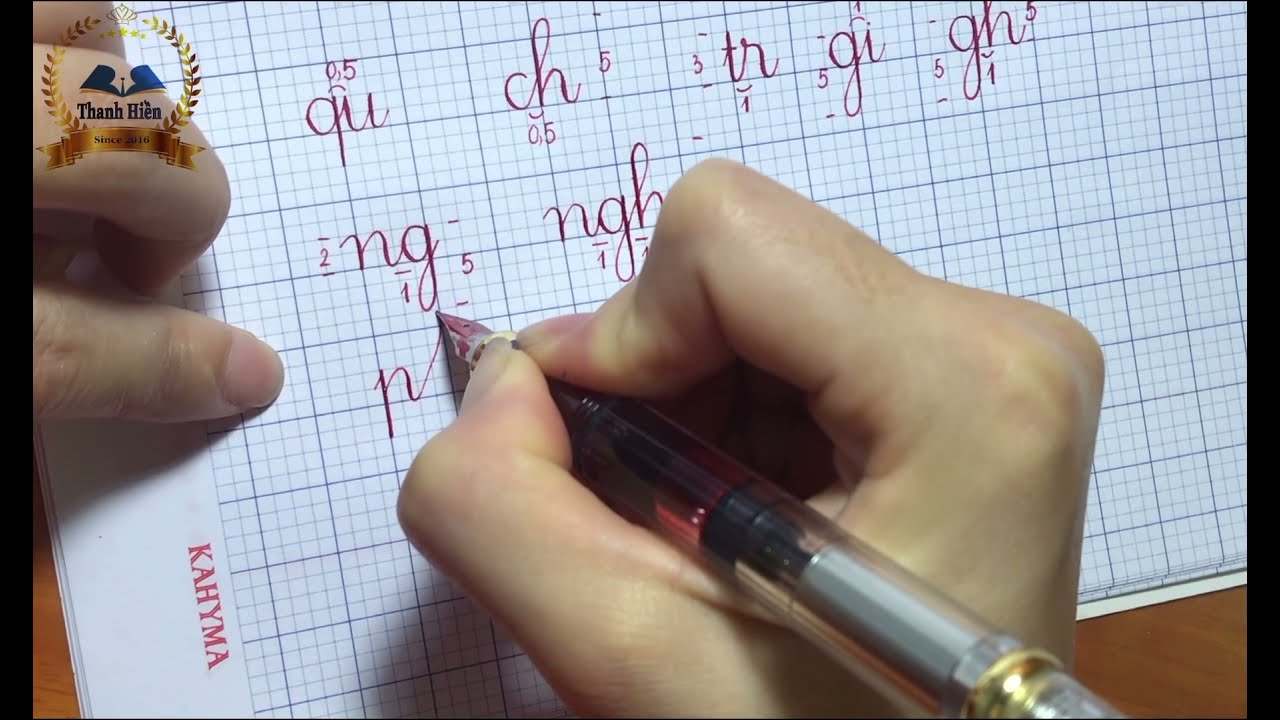 Thanh Hiền
Since 2016
0,5 5 3 5 5 5
qu ch tr gi gh
0,5 1 1 1
ng ngh
2 5
1 1 1
p
KAHYMA